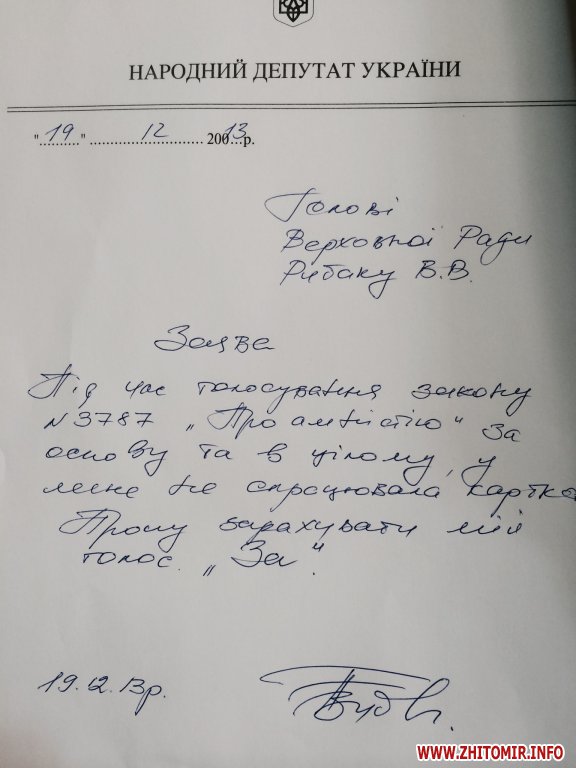 НАРОДНИЙ ДЕПУТАТ УКРАЇНИ
"19" 12 20013р.
Голові
Верховної Ради
Рибаку В.В.
Заява
Під час голосування закону
№3787 „Про амністію" за
основу та в цілому, у
мене не спрацювала картка
Прошу зарахувати мій
голос „За".
19.12.13р.
WWW.ZHITOMIR.INFO